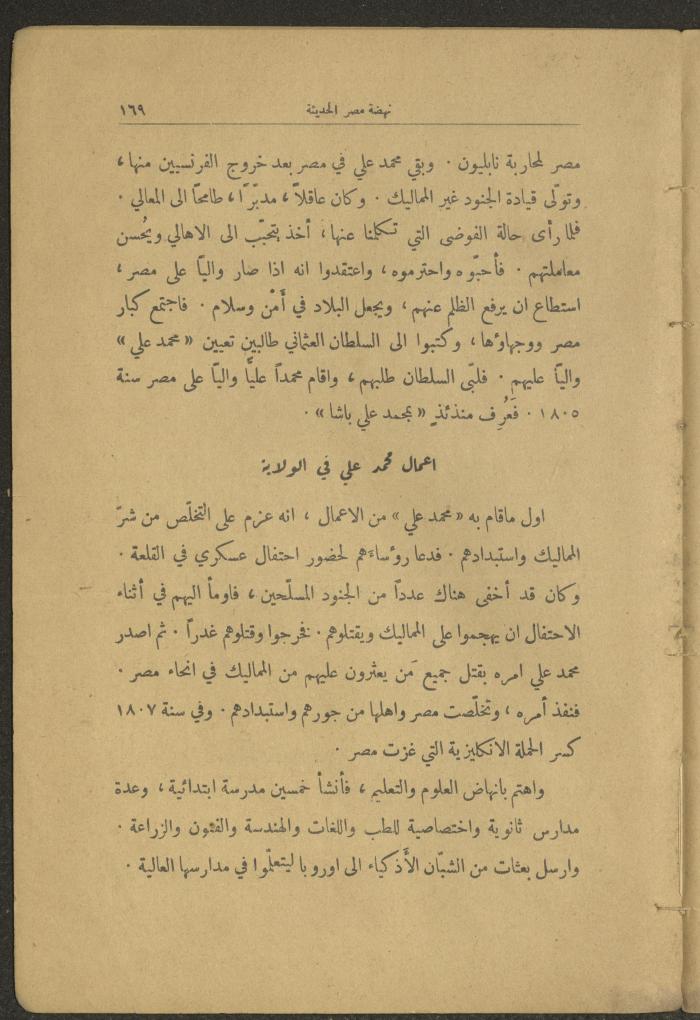 نهضة مصر الحديثة ١٦٩
مصر لمحاربة نابليون . وبقي محمد علي في مصر بعد خروج الفرنسيين منها ،
وتولّى قيادة الجنود غير المماليك . وكان عاقلاً ، مدبّرًا ، طامحًا الى المعالي .
فلما رأى حالة الفوضى التي تكلمنا عنها ، أخذ يتحبّب الى الاهالي ويُحسن
معاملتهم . فأحبّوه واحترموه ، واعتقدوا انه اذا صار واليًا على مصر ،
استطاع ان يرفع الظلم عنهم ، ويجعل البلاد في أَمْن وسلام . فاجتمع كبار
مصر ووجهاؤها ، وكتبوا الى السلطان العثماني طالبين تعيين « محمد علي »
واليًا عليهم . فلبّى السلطان طلبهم ، واقام محمداً عليًّا واليًا على مصر سنة
١٨٠٥ . فَعُرِف منذئذٍ « بمحمد علي باشا » .
اعمال محمد علي في الولاية
اول ماقام به « محمد علي » من الاعمال ، انه عزم على التخلّص من شرّ
المماليك واستبدادهم . فدعا رؤساءَهم لحضور احتفال عسكري في القلعة .
وكان قد أخفى هناك عدداً من الجنود المسلّحين ، فاومأ اليهم في أثناء
الاحتفال ان يهجموا على المماليك ويقتلوهم . فخرجوا وقتلوهم غدراً . ثم اصدر
محمد علي امره بقتل جميع مَن يعثرون عليهم من المماليك في انحاء مصر .
فنفذ أمره ، وتخلّصت مصر واهلها من جورهم واستبدادهم . وفي سنة ١٨٠٧
كسر الحملة الانكليزية التي غزت مصر .
واهتم بانهاض العلوم والتعليم ، فأنشأ خمسين مدرسة ابتدائية ، وعدة
مدارس ثانوية واختصاصية للطب واللغات والهندسة والفنون والزراعة .
وارسل بعثات من الشبّان الأَذكياء الى اوروبا ليتعلّموا في مدارسها العالية .